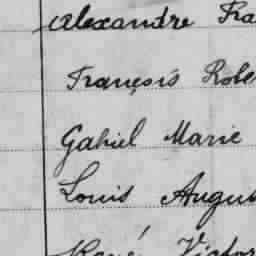 Alexandre Fra
François Robe
Gabiel Marie
Louis Augus
René Victor